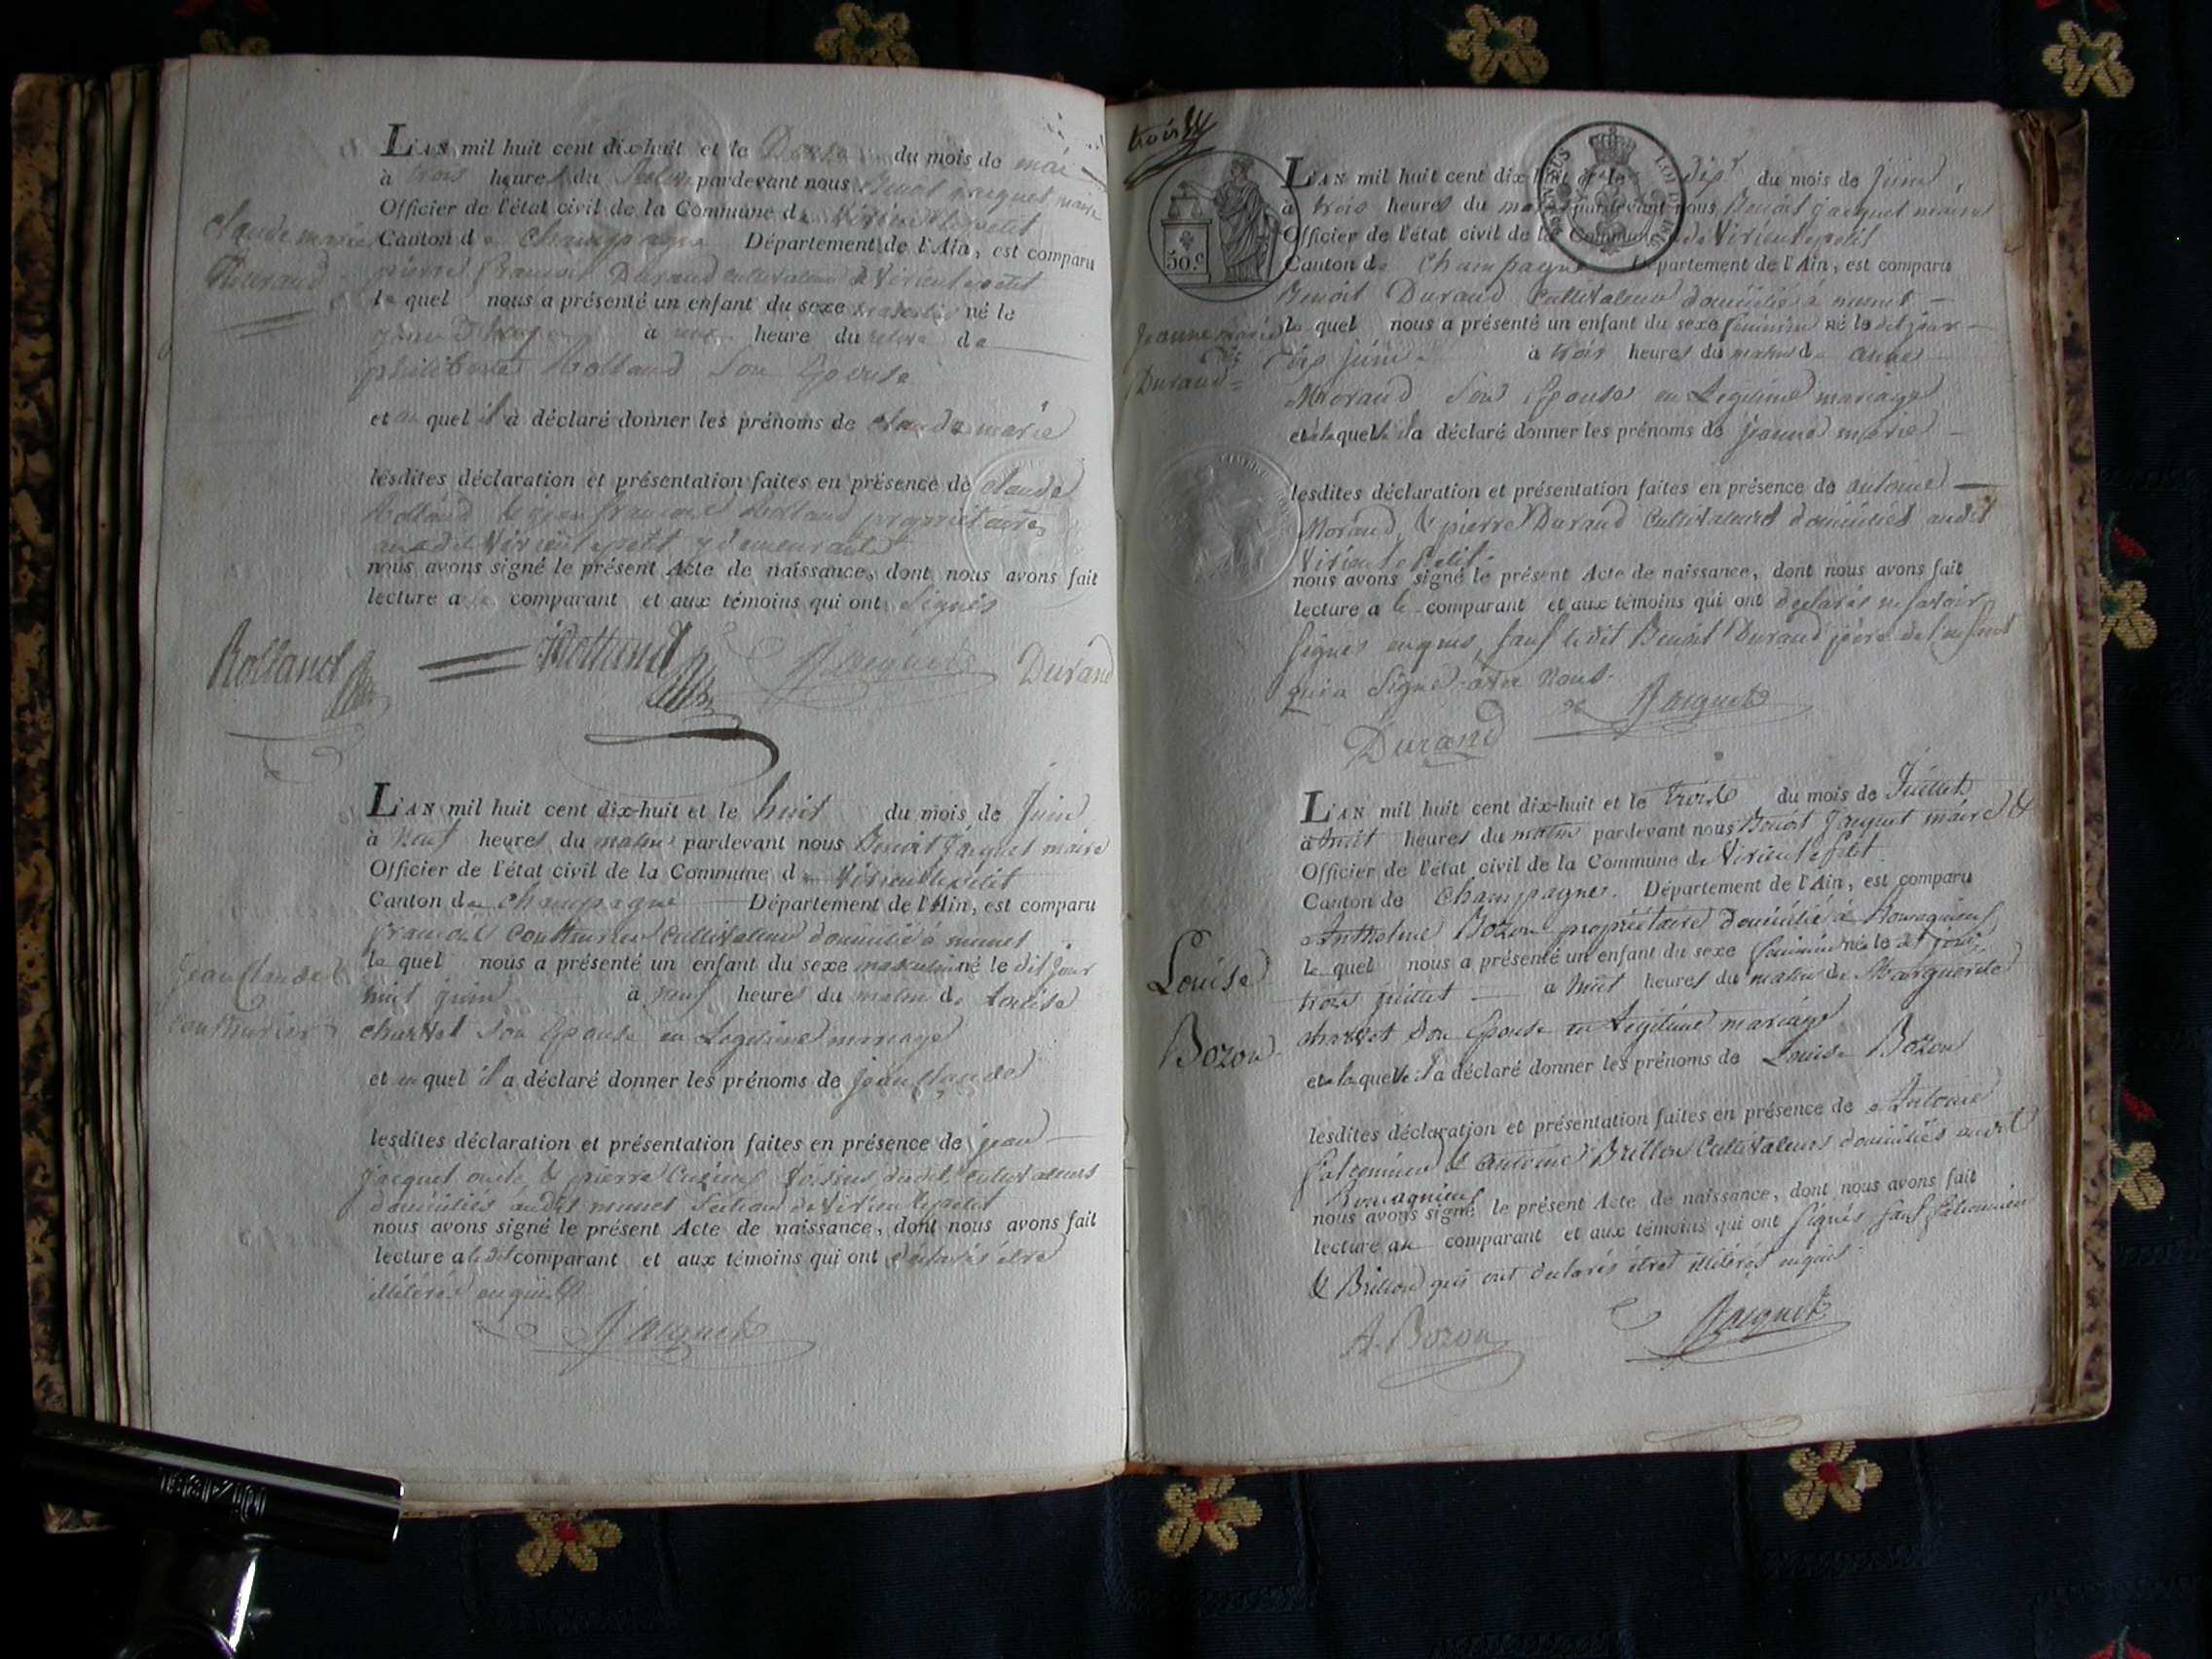 L'AN mil huit cent dix-huit et le Douze du mois de mai
à trois heures du pardevant nous Benoit Jacquet maire
Officier de l'état civil de la Commune de Virieulepetit
Canton de Champagne Département de l'Ain, est comparu
pierre françois Durand cultivateur à Virieulepetit
le quel nous a présenté un enfant du sexe masculin né le
à une heure du de
philiberte Rolland Son Epouse
et au quel il a déclaré donner les prénoms de Claude marie
claude marie
Durand
lesdites déclaration et présentation faites en présence de Claude
Rolland & jean françois Rolland propriétaires
audit Virieulepetit y demeurants
nous avons signé le présent Acte de naissance, dont nous avons fait
lecture au comparant et aux témoins qui ont Signés
Rolland Rolland Jacquet Durand
L'AN mil huit cent dix-huit et le huit du mois de Juin
à neuf heures du matin pardevant nous Benoit Jacquet maire
Officier de l'état civil de la Commune de Virieulepetit
Canton de Champagne Département de l'Ain, est comparu
françois Couthurier Cultivateur domicilié à munet
le quel nous a présenté un enfant du sexe masculin né le dit jour
huit juin à neuf heures du matin de Louise
charvet Son Epouse en Legitime mariage
et au quel il a déclaré donner les prénoms de jean Claude
jean Claude
Couthurier
lesdites déclaration et présentation faites en présence de jean
jacquet & pierre voisins dudit, cultivateurs
domiciliés audit munet Section de Virieulepetit
nous avons signé le présent Acte de naissance, dont nous avons fait
lecture a ledit comparant et aux témoins qui ont déclarés être
illitérés enquis
Jacquet
trois
50.c
L'AN mil huit cent dix-huit et le dix du mois de Juin
à trois heures du matin pardevant nous Benoit Jacquet maire
Officier de l'état civil de la Commune de Virieulepetit
Canton de Champagne Département de l'Ain, est comparu
Benoit Durand Cultivateur domicilié à munet
le quel nous a présenté un enfant du sexe féminin né le dit jour
dix juin à trois heures du matin de anne
Morand Son Epouse en Legitime mariage
et a la quelle il a déclaré donner les prénoms de jeanne marie
Jeanne marie
Durand
lesdites déclaration et présentation faites en présence de antoine
Morand, & pierre Durand Cultivateurs domiciliés audit
Virieulepetit
nous avons signé le présent Acte de naissance, dont nous avons fait
lecture a le comparant et aux témoins qui ont déclarés ne savoir
signer enquis, sauf ledit Benoit Durand père de l'enfant
qui a Signé avec Nous.
Durand Jacquet
L'AN mil huit cent dix-huit et le trois du mois de Juillet
à huit heures du matin pardevant nous Benoit Jacquet maire &
Officier de l'état civil de la Commune de Virieulepetit
Canton de Champagne. Département de l'Ain, est comparu
Anthelme Bozon propriétaire domicilié à Romagnieu
le quel nous a présenté un enfant du sexe féminin né le dit jour
trois juillet à huit heures du matin de Marguerite
charvet Son Epouse en Legitime mariage
et a la quelle il a déclaré donner les prénoms de Louise Bozon
Louise
Bozon
lesdites déclaration et présentation faites en présence de Antoine
& Antoine Brillon Cultivateurs domiciliés audit
Romagnieu
nous avons signé le présent Acte de naissance, dont nous avons fait
lecture au comparant et aux témoins qui ont Signés sauf
& Brillon qui ont déclarés être illitérés enquis
A. Bozon Jacquet